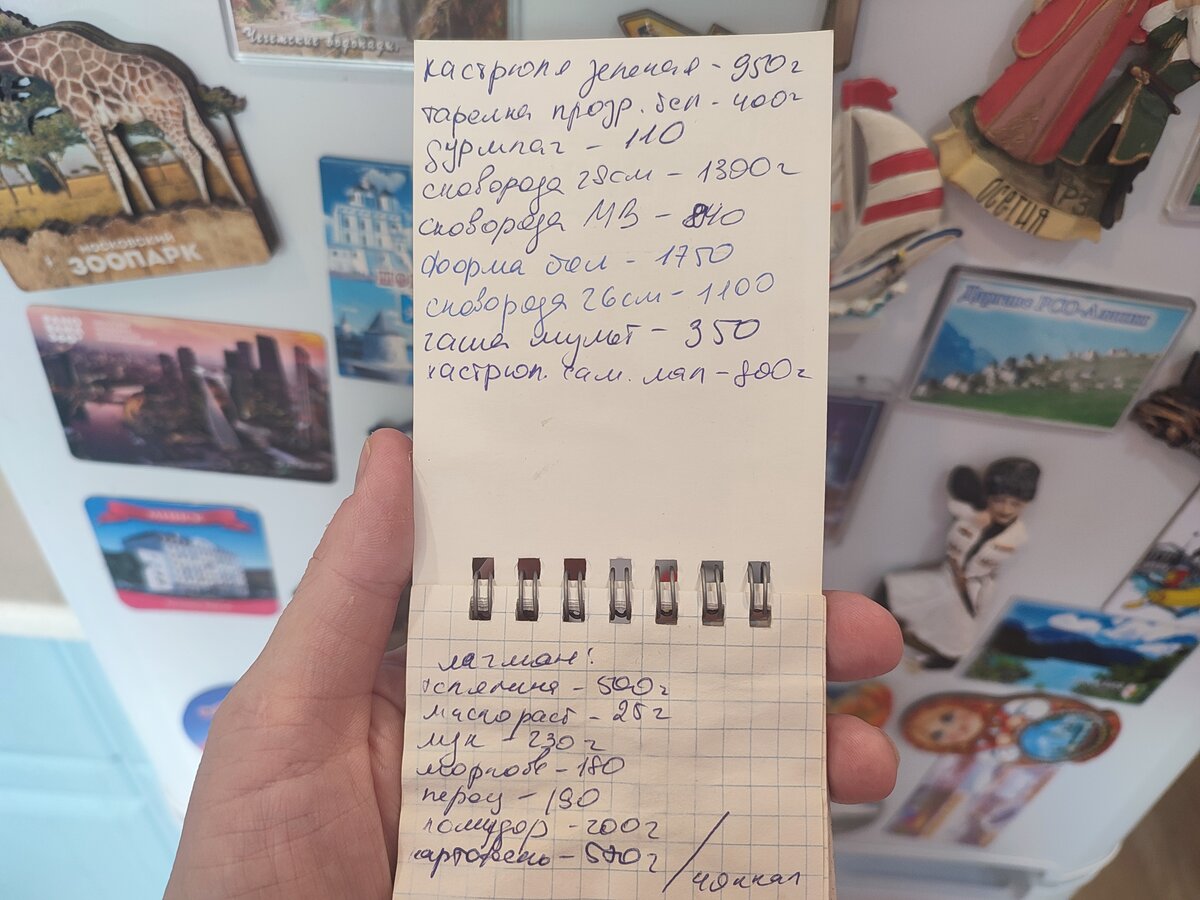 Чегемские водопады
кастрюля зеленая - 950г
тарелка прозр. бел - 400г
бурмпаг - 110
сковорода 28см - 1300г
сковорода МВ - 840
форма бел - 1750
сковорода 26см - 1100
чаша мульт - 350
кастрюл. сам. мал - 800г
МОСКОВСКИЙ
ЗООПАРК
ОСЕТИЯ
Даргавс РСО-Алания
лагман:
телятина - 500г
масло раст - 25г
лук - 230г
морковь - 180
перец - 190
помидор - 200г
картофель - 570г / 40ккал